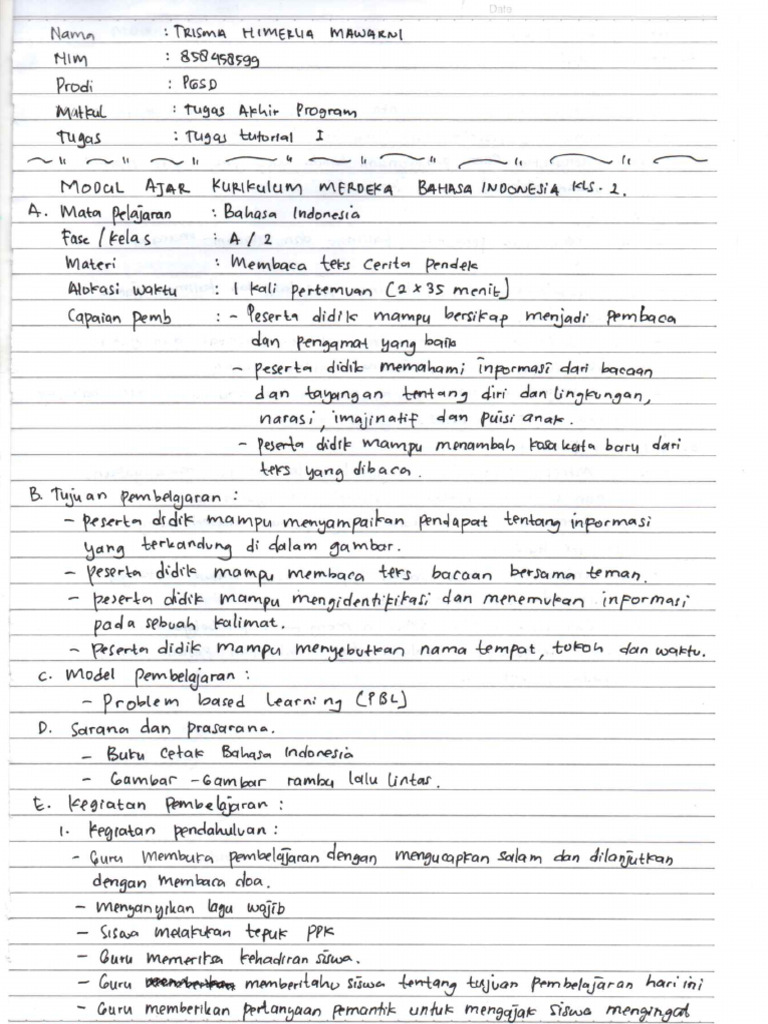 Date
Nama : TRISMA HIMERLIA MAWARNI
NIM : 858458599
Prodi : PGSD
Matkul : Tugas Akhir Program
Tugas : Tugas tutorial I
MODUL AJAR KURIKULUM MERDEKA BAHASA INDONESIA KLS. 2.
A. Mata pelajaran : Bahasa Indonesia
Fase / kelas : A / 2
Materi : Membaca teks Cerita Pendek
Alokasi waktu : 1 kali pertemuan (2 x 35 menit)
Capaian Pemb : - Peserta didik mampu bersikap menjadi pembaca
dan pengamat yang baik
- peserta didik memahami informasi dari bacaan
dan tayangan tentang diri dan lingkungan,
narasi, imajinatif dan puisi anak.
- peserta didik mampu menambah kosakata baru dari
teks yang dibaca.
B. Tujuan pembelajaran :
- peserta didik mampu menyampaikan pendapat tentang informasi
yang terkandung di dalam gambar.
- peserta didik mampu membaca teks bacaan bersama teman.
- peserta didik mampu mengidentikikasi dan menemukan informasi
pada sebuah kalimat.
- peserta didik mampu menyebutkan nama tempat, tokoh dan waktu.
C. Model pembelajaran :
- Problem based Learning (PBL)
D. Sarana dan prasarana.
- Buku Cetak Bahasa Indonesia
- Gambar - Gambar rambu lalu lintas.
E. Kegiatan Pembelajaran :
1. Kegiatan pendahuluan :
- Guru membuka pembelajaran dengan mengucapkan salam dan dilanjutkan
dengan membaca doa.
- menyanyikan lagu wajib
- Siswa melakukan tepuk PPK
- Guru memeriksa kehadiran siswa.
- Guru memberitahu siswa tentang tujuan pembelajaran hari ini
- Guru memberikan pertanyaan pemantik untuk mengajak siswa mengingat